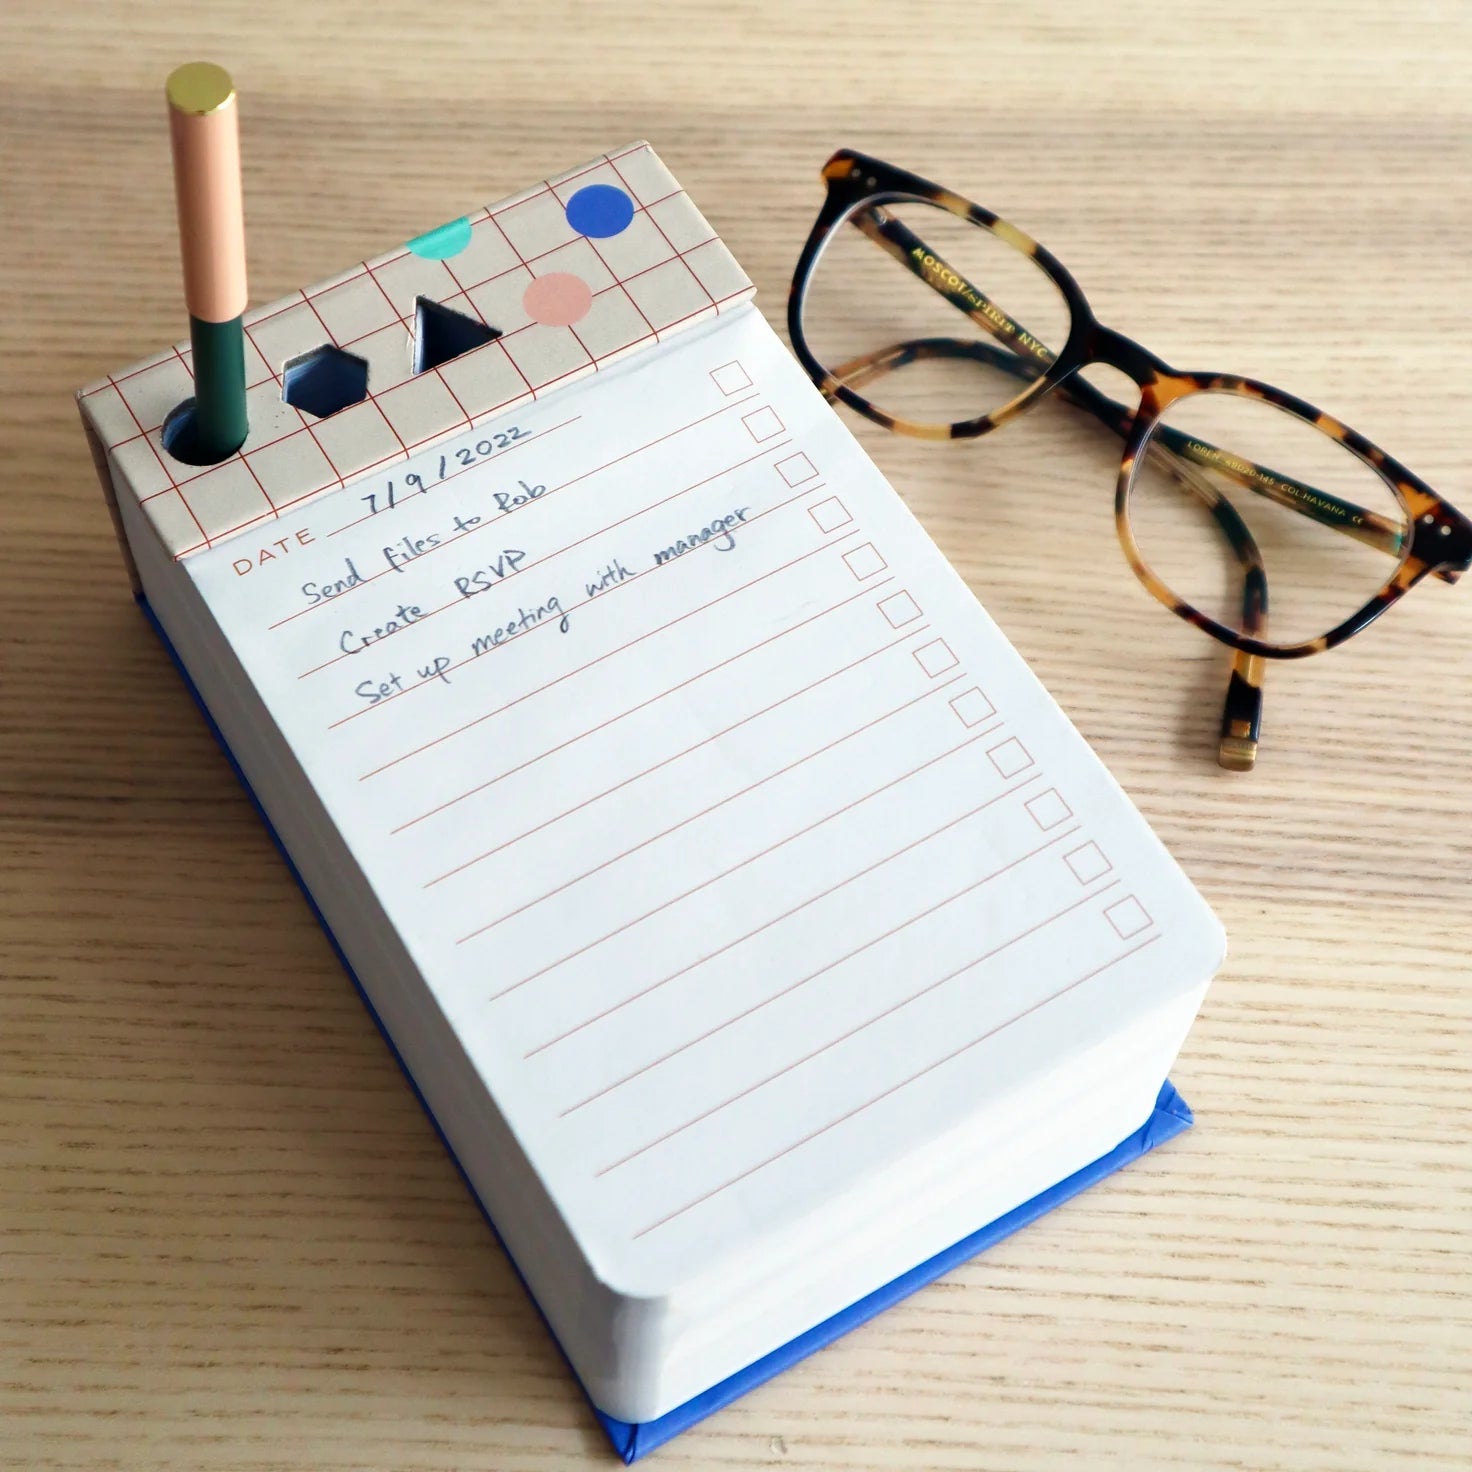 DATE 7/9/2022
Send files to Rob
Create RSVP
Set up meeting with manager
MOSCOT/SPIRIT NYC
LOREN 48020-145 COL.HAVANA CE